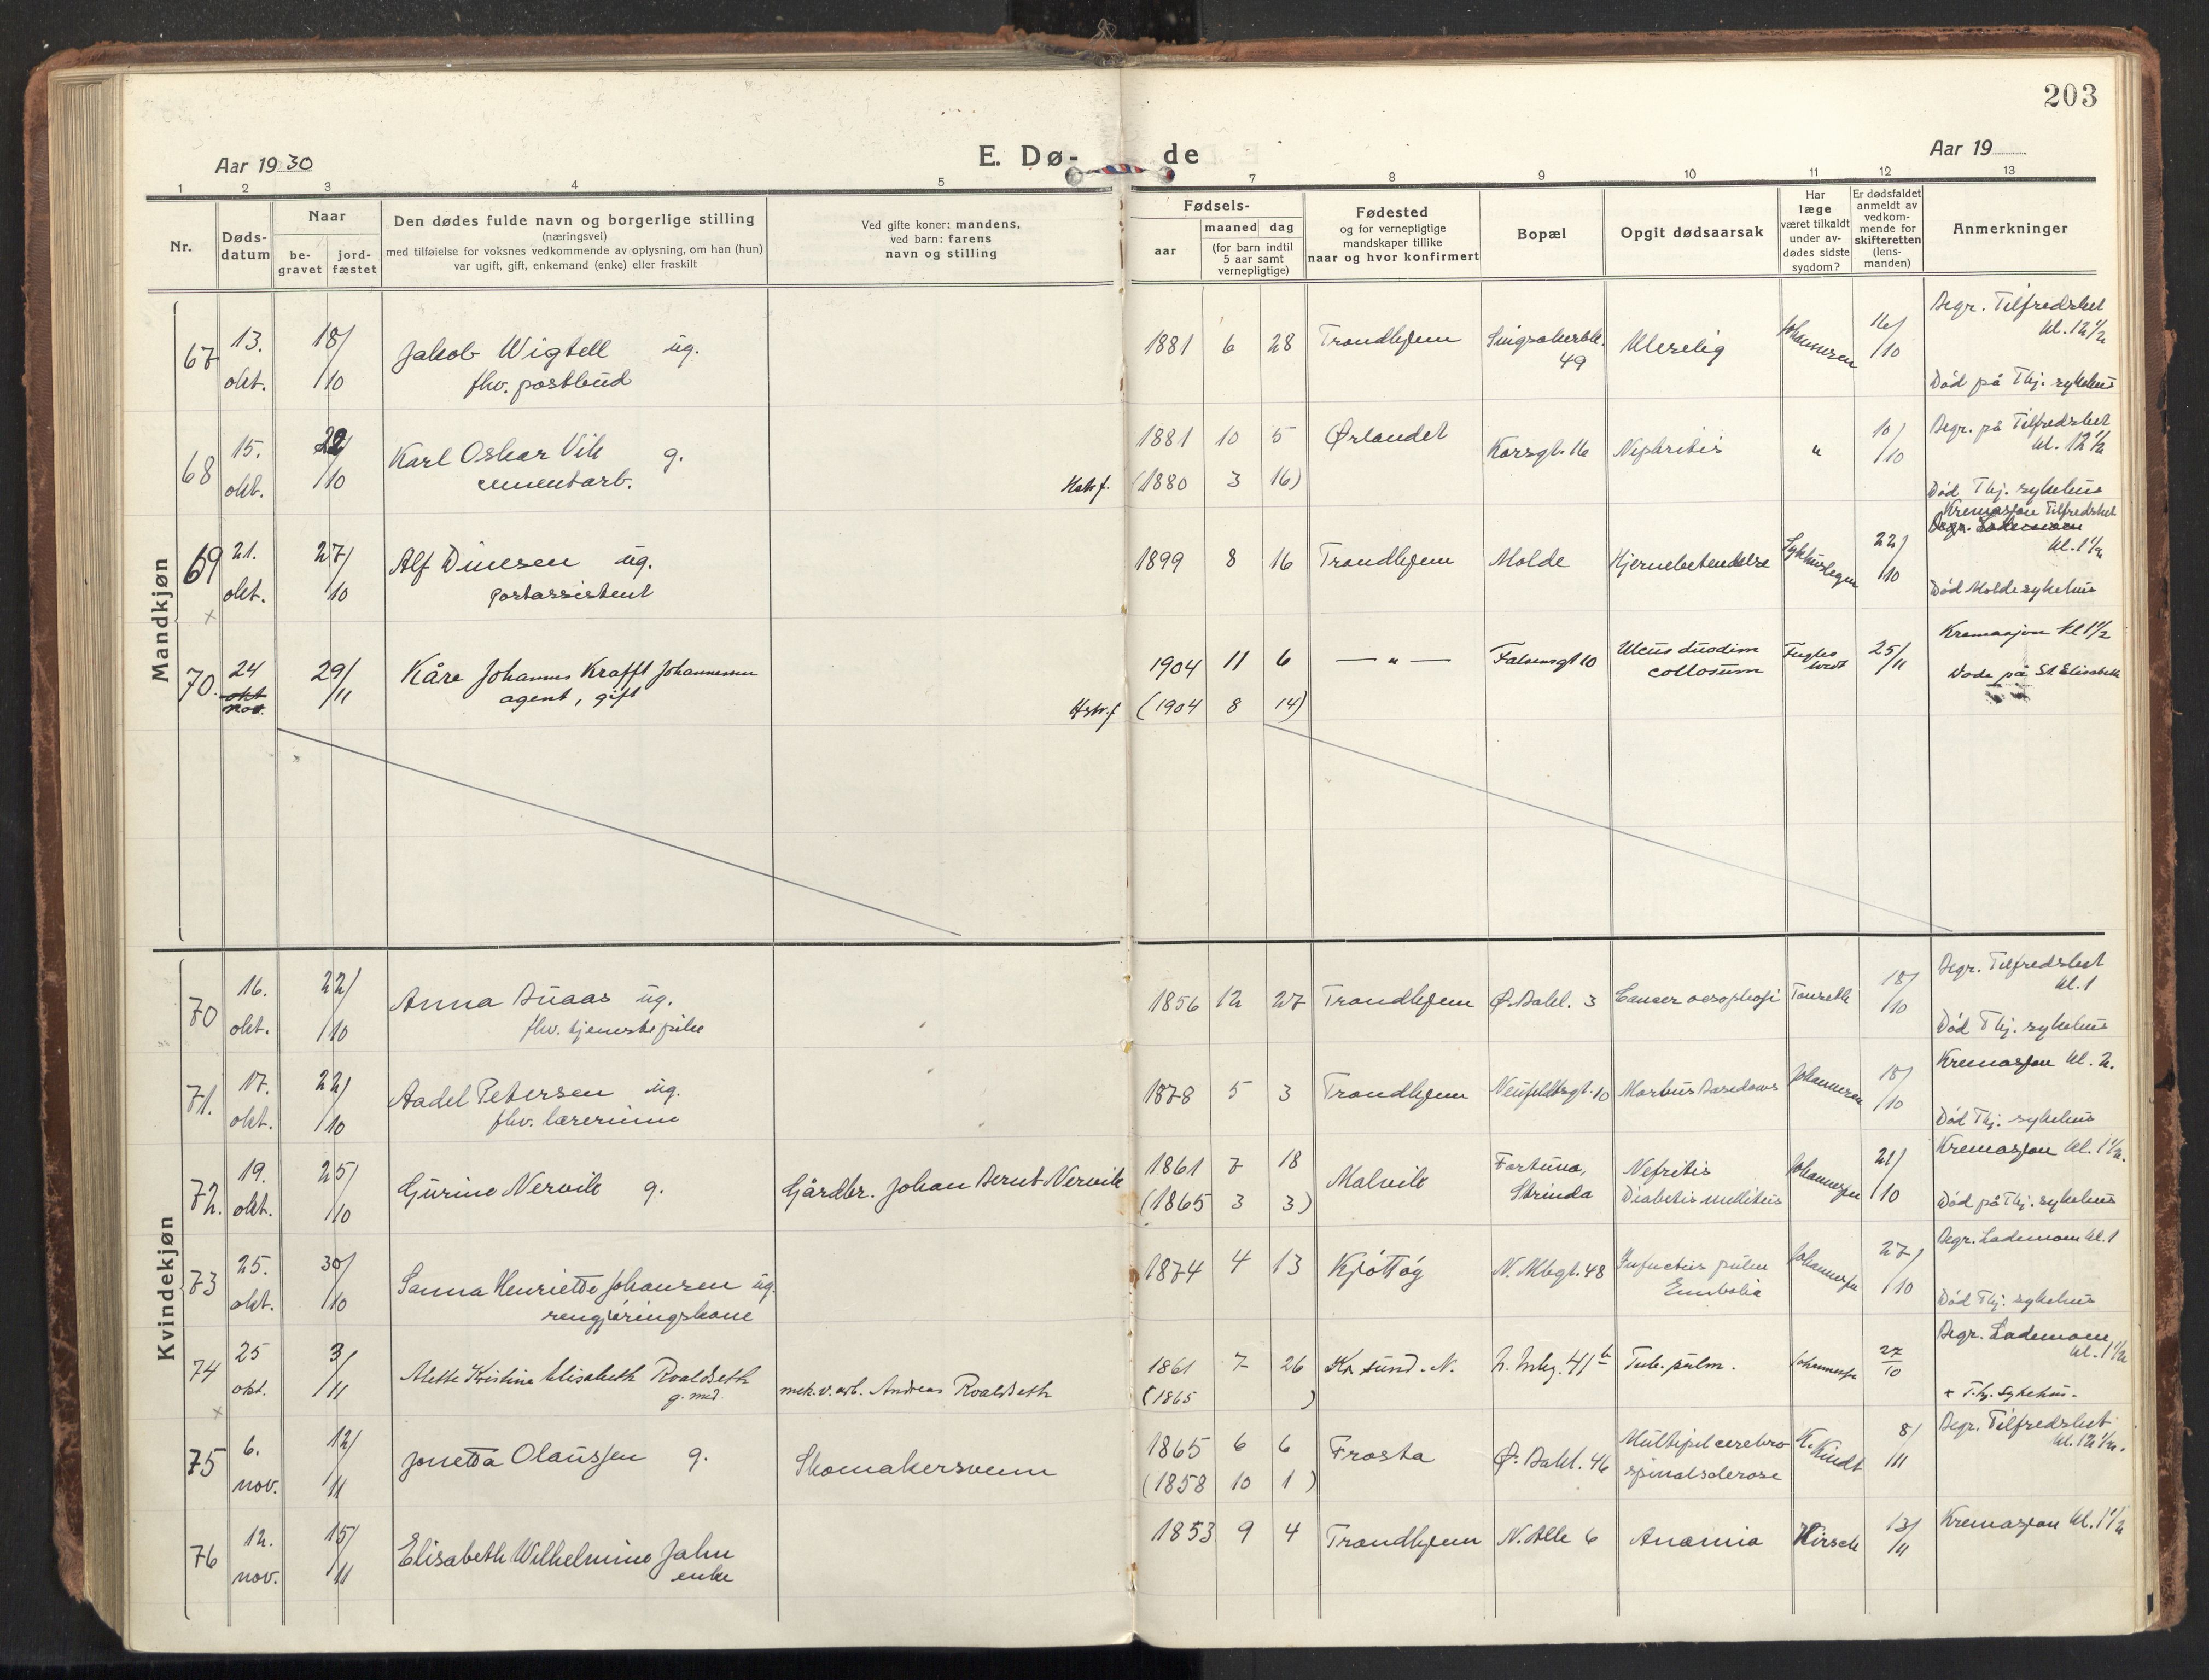 203
Aar 1930
E. Dø-
de
Aar 19
1 2 3 4 5 7 8 9 10 11 12 13
Nr.
Døds-
datum
Naar
be-
gravet
jord-
fæstet
Den dødes fulde navn og borgerlige stilling
(næringsvei)
med tilføielse for voksnes vedkommende av oplysning, om han (hun)
var ugift, gift, enkemand (enke) eller fraskilt
Ved gifte koner: mandens,
ved barn: farens
navn og stilling
Fødsels-
aar
maaned dag
(for barn indtil
5 aar samt
vernepligtige)
Fødested
og for vernepligtige
mandskaper tillike
naar og hvor konfirmert
Bopæl
Opgit dødsaarsak
Har
læge
været tilkaldt
under av-
dødes sidste
sygdom?
Er dødsfaldet
anmeldt av
vedkom-
mende for
skifteretten
(lens-
manden)
Anmerkninger
Mandkjøn
67 13. okt. 18/10
Jakob Wigtell ug.
fhv. postbud
1881 6 28 Trondhjem
49
Johannesen
/10
Begr. Tilfredshet
kl. 12 1/2
Død på Thj. sykehus
68 15. okt. 22/10
Karl Oskar Vik g.
cementarb.
1881 10 5 Ørlandet
(1880 3 16)
Korsgt. 16 Nephritis " /10
Begr. på Tilfredshet
kl. 12 1/2
Død Thj. sykehus
69 21. okt. 27/10
Alf Dinesen ug.
postassistent
1899 8 16 Trondhjem Molde Hjernebetendelse Sykehuslegen 22/10
Kremasjon Tilfredshet
Begr. Lademoen
kl. 1 1/2
Død Molde sykehus
70. 24 okt nov. 29/11
Kåre Johannes Krafft Johannesen
agent, gift
1904 11 6 — " —
(1904 8 14)
Ulcus duodim
collosum
25/11
Kremasjon kl 1 1/2
Døde på St. Elisabeth
Kvindekjøn
70 16. okt. 22/10
Anna Buaas ug.
fhv. tjenestepike
1856 12 27 Trondhjem Ø. Bakl. 3 Cancer oesophagi 18/10
Begr. Tilfredshet
kl. 1
Død Thj. sykehus
71. 17. okt. 22/10
Aadel Petersen ug.
fhv. lærerinne
1878 5 3 Trondhjem Neufeldtsgt. 10 Morbus Basedows Johannesen 18/10
Kremasjon kl. 2.
Død Thj. sykehus
72. 19. okt. 25/10
Gurine Nervik g.
Gårdbr. Johan Bernt Nervik
1861 7 18
(1865 3 3)
Malvik
Fortuna,
Strinda
Nefritis
Diabetis mellitus
Johannesen 21/10
Kremasjon kl. 1 1/2.
Død på Thj. sykehus
73 25. okt. 30/10
Sanna Henriette Johansen ug.
rengjøringskone
1874 4 13 Kjøttøy
48
Infarctus pulm
Embolia
Johannesen 27/10
Begr. Lademoen kl. 1
Død Thj. sykehus
74 25 okt. 3/11
Alette Kristine Elisabeth Roaldseth
g. med
mek. v. arb. Andreas Roaldseth
1861 7 26
(1865 )
Kr. sund. N.
Tub. pulm.
Johannesen 27/10
Begr. Lademoen
kl. 1 1/2
+ T.hj. Sykehus.
75 6. nov. 12/11
Jonetta Olaussen g.
Skomakersvenn
1865 6 6
(1858 10 1)
Frosta Ø. Bakl. 46
Multipel cerebro
spinalsclerose
Kindt 8/11
Begr. Tilfredshet
kl. 12 1/2.
76 12. nov. 15/11
Elisabeth Wilhelmine Jahn
enke
1853 9 4 Trondhjem N. Alle 6 Anæmia Hirsch 13/11
Kremasjon kl. 1 1/2